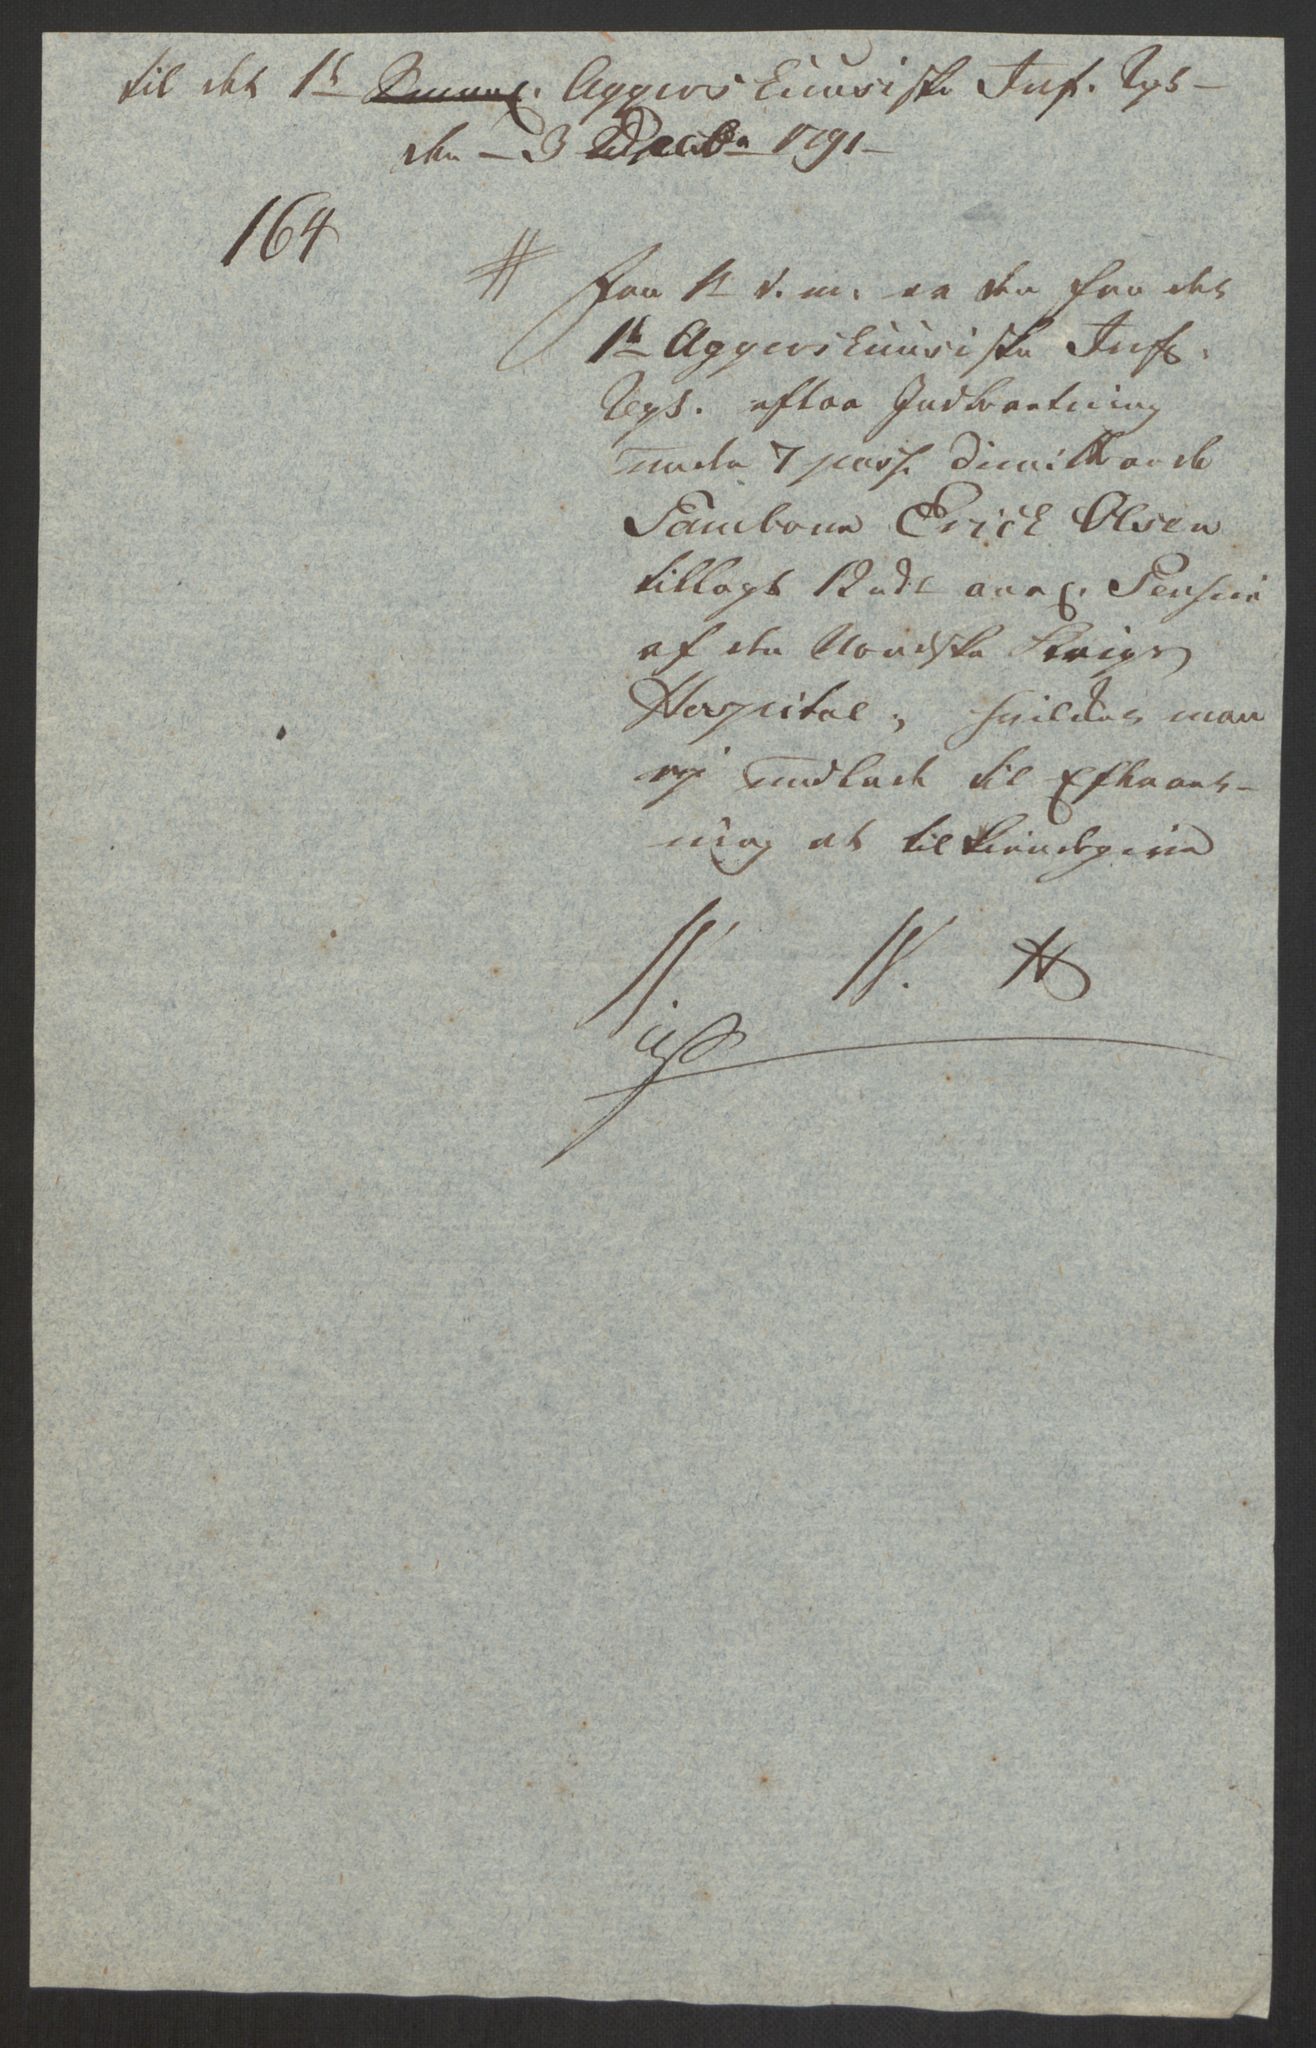 til det 1te Aggershuusiske Inf. Rgt
den 3 Decbr 1791
164
Fra 1te d. m. er den fra det
1te Aggershuusiske Inf.
Regt. efter Indberetning
under 7 pass. dimitterede
Tambour Erich Olsen
tillagt 12 rdl aarl. Pension
af den Norske Krigs
Hospital, hvilket man
ej undlod til Efterret-
ning at tilkiendegive
N. N. H